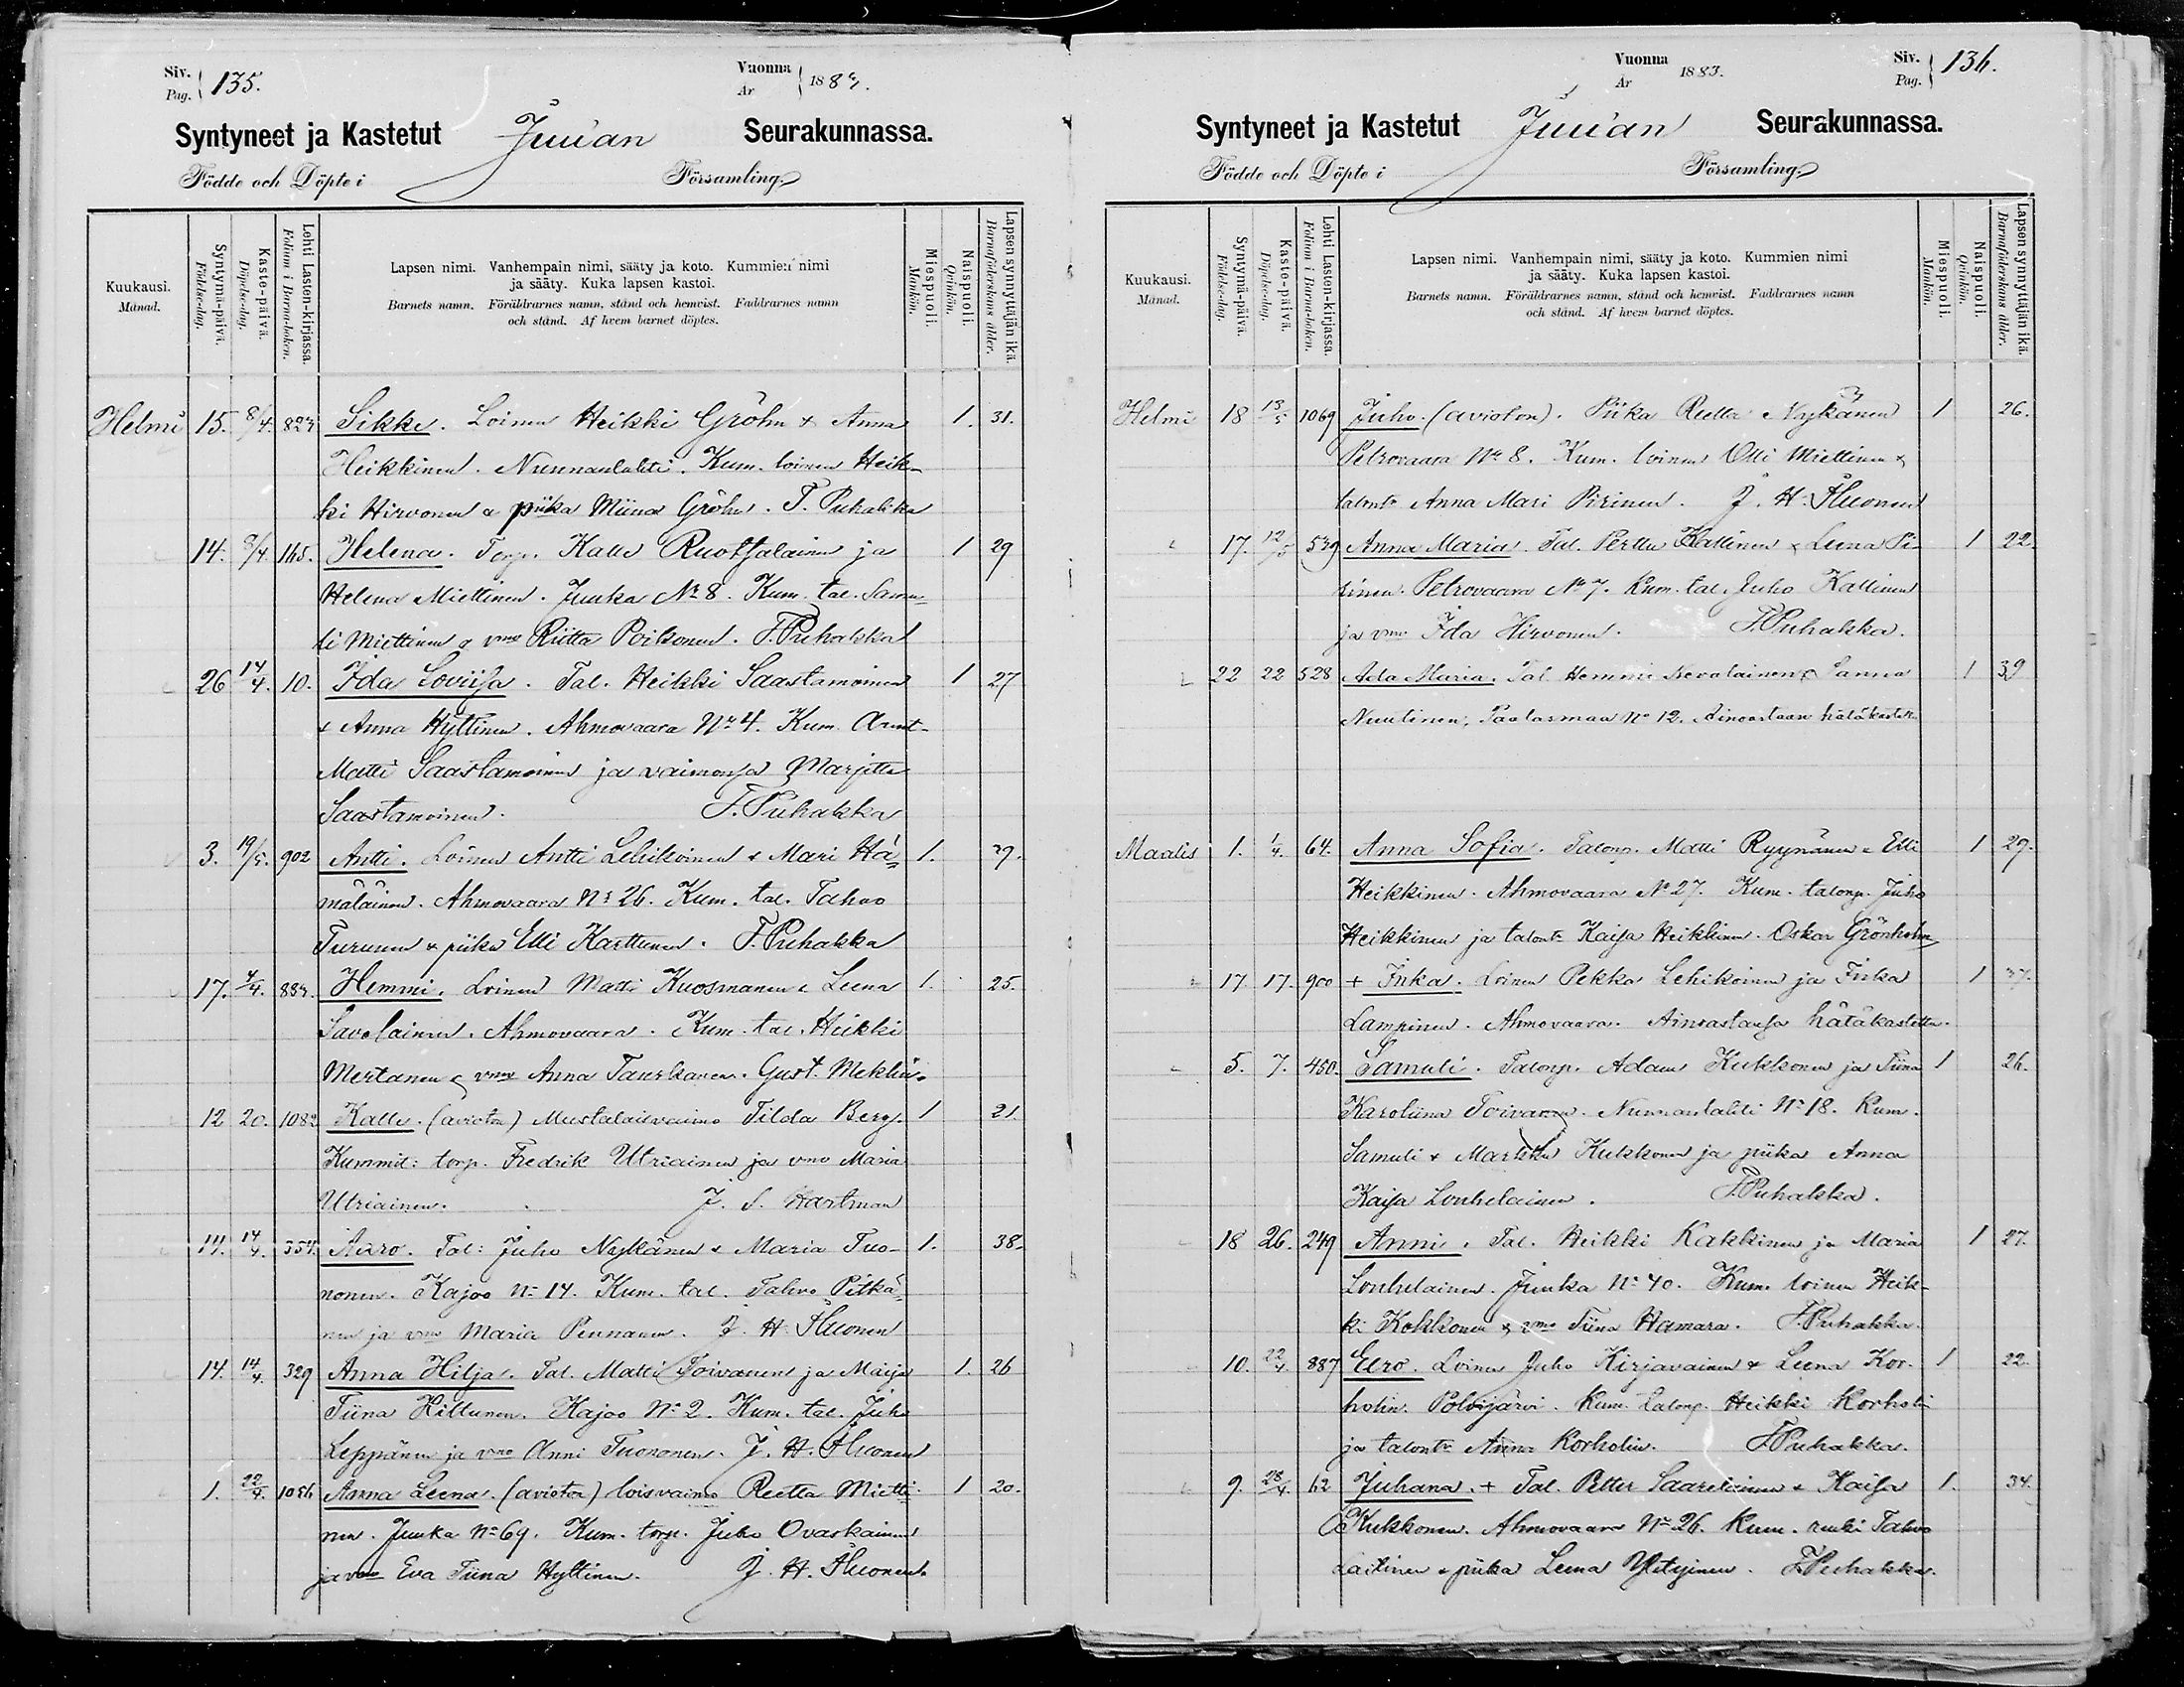 Siv. Pag. 135.
Vuonna Ar 1883.
Syntyneet ja Kastetut Juuan Seurakunnassa.
Födde och Döpte i Församling.
Kuukausi. Månad.
Syntymä-päivä. Födelse-dag.
Kaste-päivä. Döpelse-dag.
Lehti Lasten-kirjassa. Folium i Barna-boken.
Lapsen nimi. Vanhempain nimi, sääty ja koto. Kummien nimi
ja sääty. Kuka lapsen kastoi.
Barnets namn. Föräldrarnes namn, stånd och hemvist. Faddrarnes namn
och stånd. Af hvem barnet döptes.
Miespuoli. Mankön.
Naispuoli. Qvinkön.
Lapsen synnyttäjän ikä. Barnaföderskans ålder.
Helmi 15. 8/4. 823 Sikke. Loinen Heikki Gröhn & Anna 1. 31.
Heikkinen. Nunnanlahti. Kum. loinen Heik-
ki Hirvonen & piika Miina Gröhn. F. Puhakka
14. 8/4. 165. Helena. Torp. Kalle Ruottalainen ja 1 29
Helena Miettinen. Juuka No 8. Kum. tal. Samu-
li Miettinen & vmo Riitta Poikonen. F. Puhakka
26 14/4. 10. Ida Loviisa. Tal. Heikki Saastamoinen 1 27
& Anna Hyttinen. Ahmovaara No 4. Kum.
Matti Saastamoinen ja vaimonsa Marjitta
Saastamoinen. F. Puhakka
3. 19/5. 902 Antti. Loinen Antti Lehikoinen & Mari Hä- 1. 39.
mäläinen. Ahmovaara No 26. Kum. tal. Tahvo
Turunen & piika Elli Karttunen. F. Puhakka
17. 4/4. 883. Hemmi. Loinen Matti Kuosmanen & Leena 1. 25.
Savolainen. Ahmovaara. Kum. tal. Heikki
Mertanen & vmo Anna Tanskanen. Gust. Meklin.
12 20. 1082 Kalle. (avioton) Mustalaisvaimo Tilda Berg. 1 21.
Kummit: torp. Fredrik Utriainen ja vmo Maria
Utriainen. J. S. Hartman
14. 14/4. 354. Aaro. Tal: Juho Nykänen & Maria Tuo- 1. 38.
nonen. Kajoo No 14. Kum. tal. Tahvo Pitkä-
nen ja vmo Maria Pennanen. J. H.
14. 14/4. 329 Anna Hilja. Tal. Matti Toivanen ja Maija 1. 26
Tiina Hiltunen. Kajoo No 2. Kum. tal. Juho
Leppänen ja vmo Anni Tuononen. J. H.
1. 22/4. 1086 Anna Leena. (avioton) loisvaimo Reetta Mietti- 1 20.
nen. Juuka No 69. Kum. torp. Juho Ovaskainen
ja vmo Eva Tiina Hyttinen. J. H.
Siv. Pag. 136.
Vuonna Ar 1883.
Syntyneet ja Kastetut Juuan Seurakunnassa.
Födde och Döpte i Församling.
Kuukausi. Månad.
Syntymä-päivä. Födelse-dag.
Kaste-päivä. Döpelse-dag.
Lehti Lasten-kirjassa. Folium i Barna-boken.
Lapsen nimi. Vanhempain nimi, sääty ja koto. Kummien nimi
ja sääty. Kuka lapsen kastoi.
Barnets namn. Föräldrarnes namn, stånd och hemvist. Faddrarnes namn
och stånd. Af hvem barnet döptes.
Miespuoli. Mankön.
Naispuoli. Qvinkön.
Lapsen synnyttäjän ikä. Barnaföderskans ålder.
Helmi 18 13/5 1069 Juho. (avioton). Piika Reetta Nykänen 1 26.
Petrovaara No 8. Kum. loinen Olli Miettinen &
talontr Anna Mari Pirinen. J. H.
17. 12/5 539 Anna Maria. Tal. Perttu Kallinen & Leena Pi- 1 22.
rinen. Petrovaara No 7. Kum. tal. Juho Kallinen
ja vmo Ida Hirvonen. F. Puhakka.
22 22 528 Ada Maria. Tal. Hemmi Nevalainen & Sanna 1 39
Nuutinen, Paalasmaa No 12. Ainoastaan hätäkastettu
Maalis 1. 1/4. 64. Anna Sofia. Talonp. Matti Ryynänen & Elli 1 29.
Heikkinen. Ahmovaara No 27. Kum. talonp. Juho
Heikkinen ja talontr Kaisa Heikkinen. Oskar Grönholm
17. 17. 900 + Inka. Loinen Pekka Lehikoinen ja Inka 1 37.
Lampinen. Ahmovaara. Ainoastansa hätäkastettu.
5. 7. 450. Samuli. Talonp. Adam Kukkonen ja Tiina 1 26.
Karoliina Toivanen. Nunnanlahti No 18. Kum.
Samuli & Markku Kukkonen ja piika Anna
Kaisa Lonhelainen. F. Puhakka.
18 26. 249 Anni. Tal. Heikki Kakkinen ja Maria 1 27.
Lonhelainen. Juuka No 40. Kum. loinen Heik-
ki Kokkonen & vmo Tiina Hamara. F. Puhakka.
10. 22/4. 887 Eero. Loinen Juho Kirjavainen & Leena Kor- 1 22.
holin. Polvijärvi. Kum. talonp. Heikki Korholin
ja talontr Anna Korholin. F. Puhakka.
9. 28/4. 62 Juhana. + Tal. Petter Saarelainen & Kaisa 1. 34.
Kukkonen. Ahmovaara No 26. Kum. renki Tahvo
Laitinen & piika Leena Yletyinen. F. Puhakka.